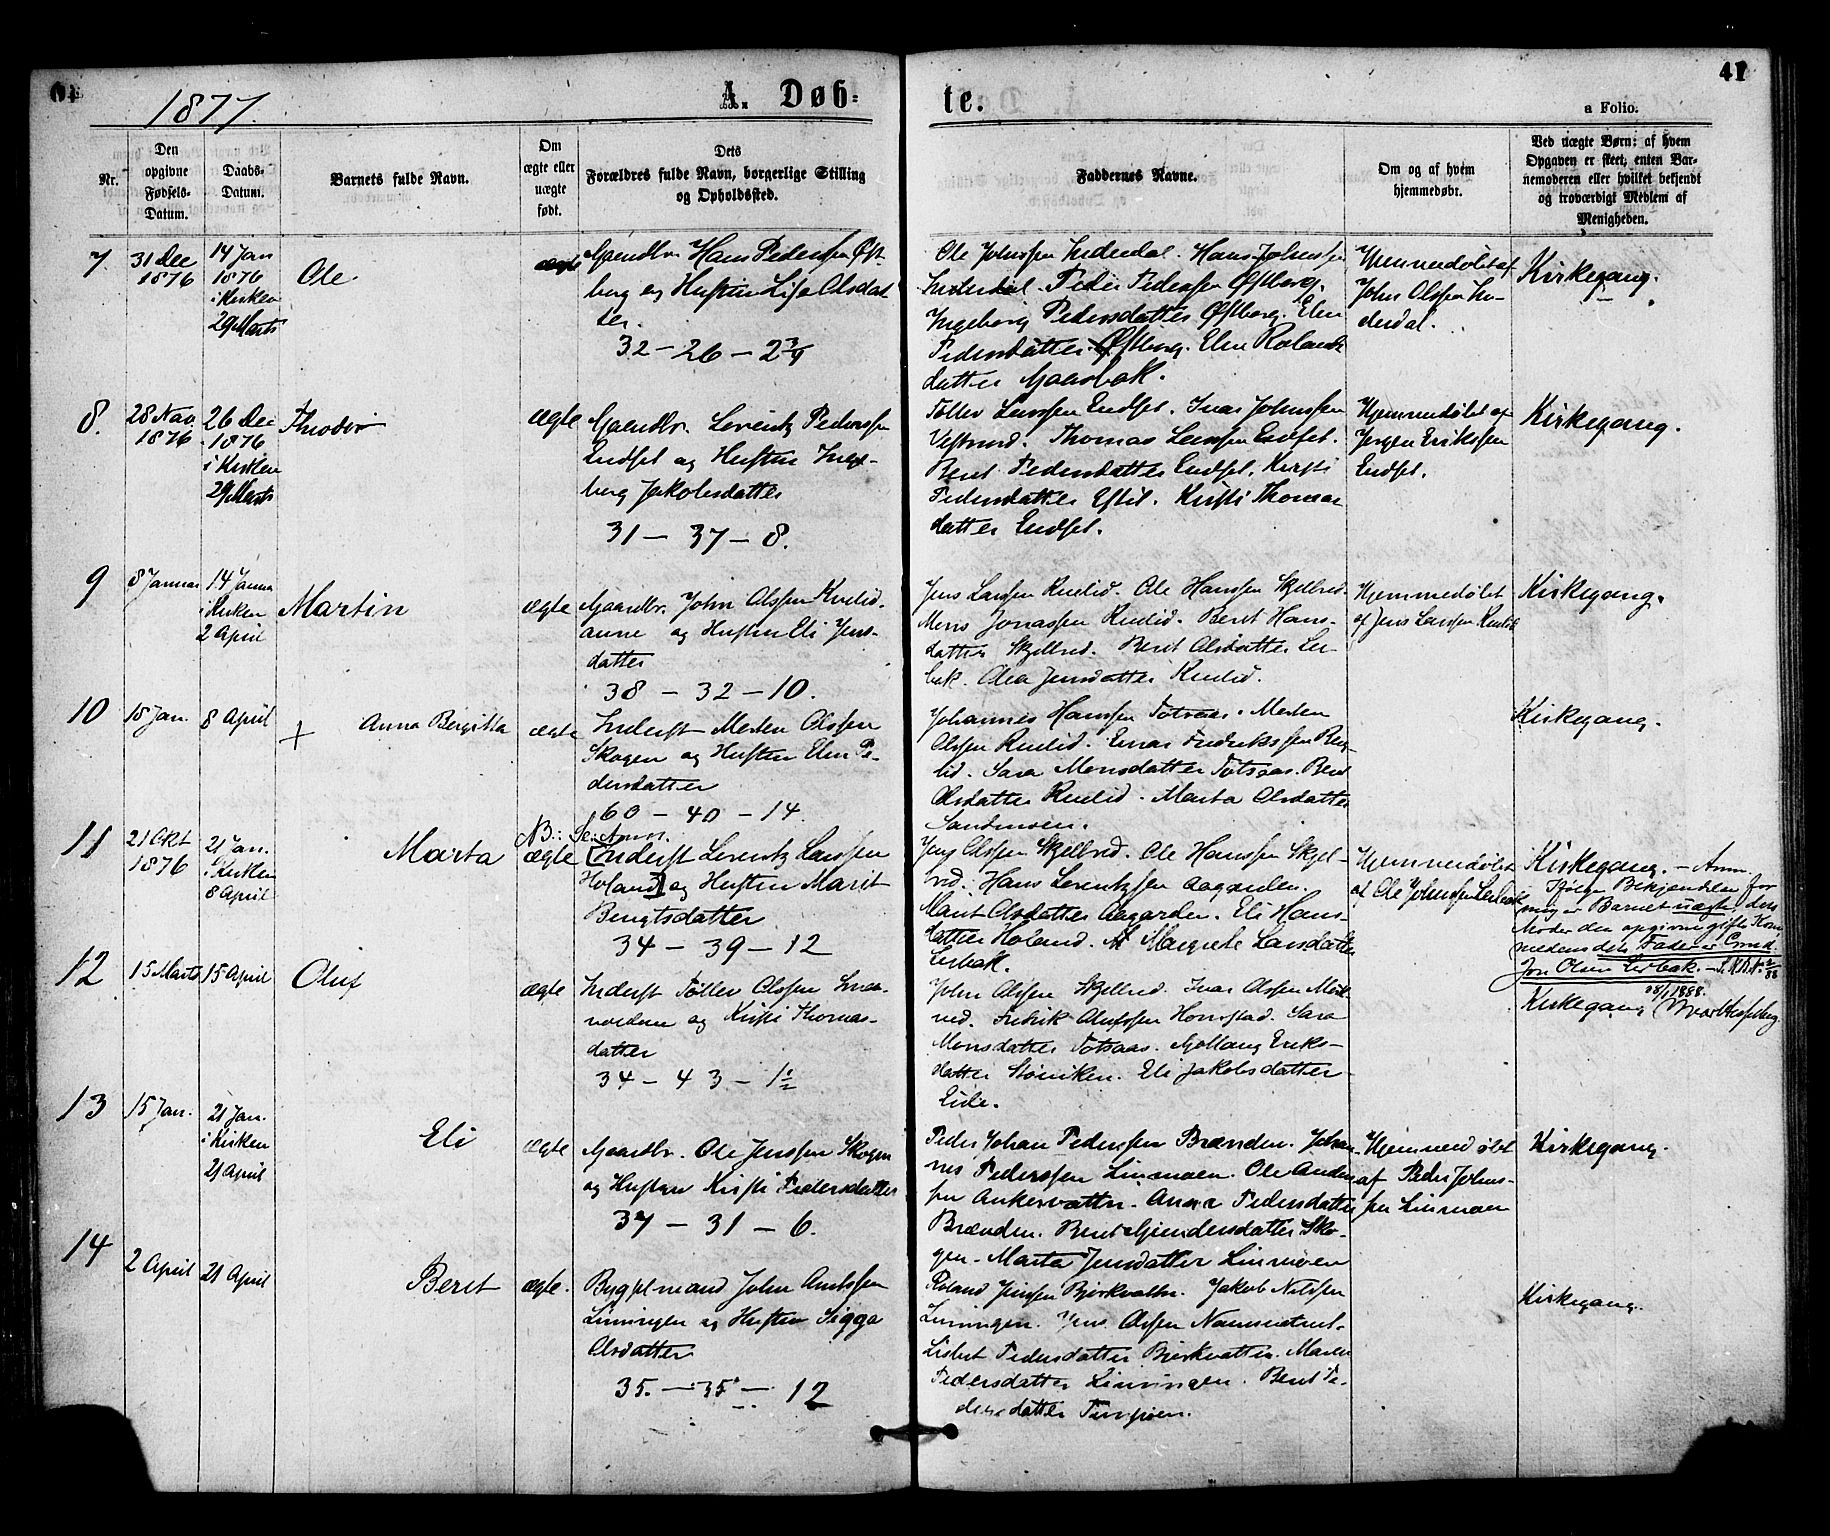 1877.
A. Døb-
te.
41
a Folio.
Nr.
Den
opgivne
Fødsels-
Datum.
Daabs-
Datum.
Barnets fulde Navn.
Om
ægte eller
uægte
født.
Dets
Forældres fulde Navn, borgerlige Stilling
og Opholdssted.
Faddernes Navne.
Om og af hvem
hjemmedøbt.
Ved uægte Børn: af hvem
Opgaven er skeet, enten Bar-
nemoderen eller hvilket bekjendt
og troværdigt Medlem af
Menigheden.
7.
31 Dec
1876
14 Jan
1876
i Kirken
29 Marts
Ole
ægte
Hans Pederssen Øst-
berg og Hustru Lisa Olsdat
ter.
32 - 26 - 2 3/4
Ole Johnssen Inderdal. Hans Johnssen
Inderdal. Peder Pederssen Østberg.
Ingeborg Pedersdatter Østberg. Elen
Pedersdatter Østberg. Elen Rolands
datter
Hjemmedøbt af
John Olssen In-
derdal.
Kirkegang.
8.
28 Nov.
1876
26 Dec
1876
i Kirken
29 Marts
Theodor
ægte
Gaardbr. Lorentz Pederssen
Endset og Hustru Inge-
borg Jakobsdatter
31 - 37 - 8.
Larssen Endset. Johnssen
Thomas Larssen Endset.
Beret Pedersdatter Endset. Kirsti
Pedersdatter Kirsti Thomas
datter Endset.
Hjemmedøbt af
Jørgen Erikssen
Endset.
Kirkegang.
9
8 Januar
14 Janua
i Kirken
2 April
Martin
ægte
Gaardbr. John Olssen Kvelid.
og Hustru Eli Jens-
datter
38 - 32 - 10.
Jens Larssen Kvelid. Ole Hanssen Skjelbred.
Mons Jonassen Kvelid. Beret Hans-
datter Skjelbred. Beret Olsdatter Ler-
bak. Olea Jensdatter Kvelid.
Hjemmedøbt
af Jens Larssen Kvelid
Kirkegang.
10
18 Jan.
8 April
+ Anna Bergitta
ægte
Inderst Morten Olssen
Skogen og Hustru Elen Pe-
dersdatter
60 - 40 - 14.
Johannes Hanssen Totsaas. Morten
Olssen Kvelid. Fredrikssen
Sara Monsdatter Totsaas. Beret
Olsdatter Kvelid. Marta Olsdatter
Sandmoen.
Kirkegang.
11
21 Okt
1876
21 Jan.
i Kirken
8 April
Marta
NB: Se Anm.
ægte
Inderst Lorentz Larssen
Holand og Hustru Marit
Bengtsdatter
34 - 39 - 12
Jens Olssen Skjelbred. Ole Hanssen Skjel-
bred. Hans Lorentzssen Aagaarden.
Marit Olsdatter Aagarden. Eli Hans-
datter Holand. Margrete Larsdatter
Lerbak.
Hjemmedøbt
af Ole Johnssen Lerbak
Kirkegang. - Anm.
Ifølge Bekjendelse for
mig er Barnet uægte, dets
Moder den opgivne gifte Kone
medens dets Fader er Emd.
Jon Olsen Lerbak.
28/1 1888.
12
15 Marts
15 April
Oluf
ægte
Inderst Tøller Olssen
og Kirsti Thomas-
datter
34 - 43 - 1 1/2
John Olssen Skjelbred. Ivar Olssen
Fredrik Olufssen Sara
Monsdatter Totsaas. Eriks-
datter Eli Jakobsdatter
Eide.
Kirkegang
13
15 Jan.
21 Jan.
i Kirken
21 April
Eli
ægte
Gaardbr. Ole Jenssen Skogen
og Hustru Kirsti Pedersdatter
37 - 31 - 6.
Peder Johan Pederssen Brænden. Johan-
nes Pederssen Linmoen. Ole Anders
sen Ankervatten. Anna Pedersdatter
Brænden. Beret Sko-
gen. Marta Jensdatter Linmoen
Hjemmedøbt
af Peder Johans-
sen Linmoen
Kirkegang.
14
2 April
21 April
Beret
ægte.
Bygselmand John
Limingen og Hustru Sigga
Olsdatter
35. - 35 - 12
Roland Jenssen Bjørkvatn. Jakob Nilssen
Limingen. Jens Olssen
Lisbet Pedersdatter Bjørkvatten. Maren
Pedersdatter Limingen. Beret Pe-
dersdatter
Kirkegang.